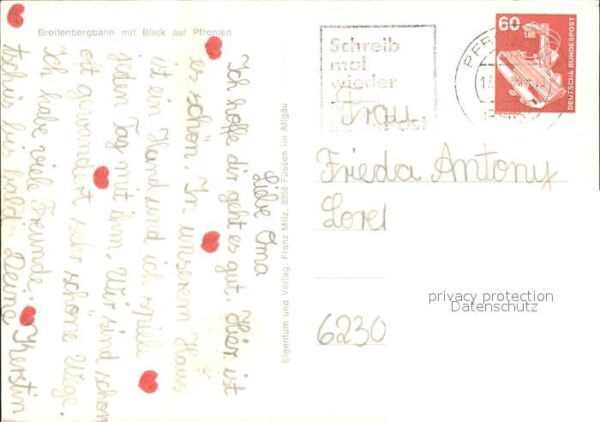 Breitenbergbahn mit Blick auf Pfronten
Liebe Oma
Ich hoffe dir geht es gut. Hier ist
es schön. In unserem Haus
ist ein Hund und ich spiele
jeden Tag mit ihm. Wir sind schon
oft gewandert sehr schöne Wege.
Ich habe viele Freunde.
tschüs bis bald Deine Kerstin
Eigentum und Verlag: Franz Milz, 8958 Füssen im Allgäu
Schreib
mal
wieder
PFR
60
DEUTSCHE BUNDESPOST
Frau
Frieda Antony
Lorel
6230
privacy protection
Datenschutz